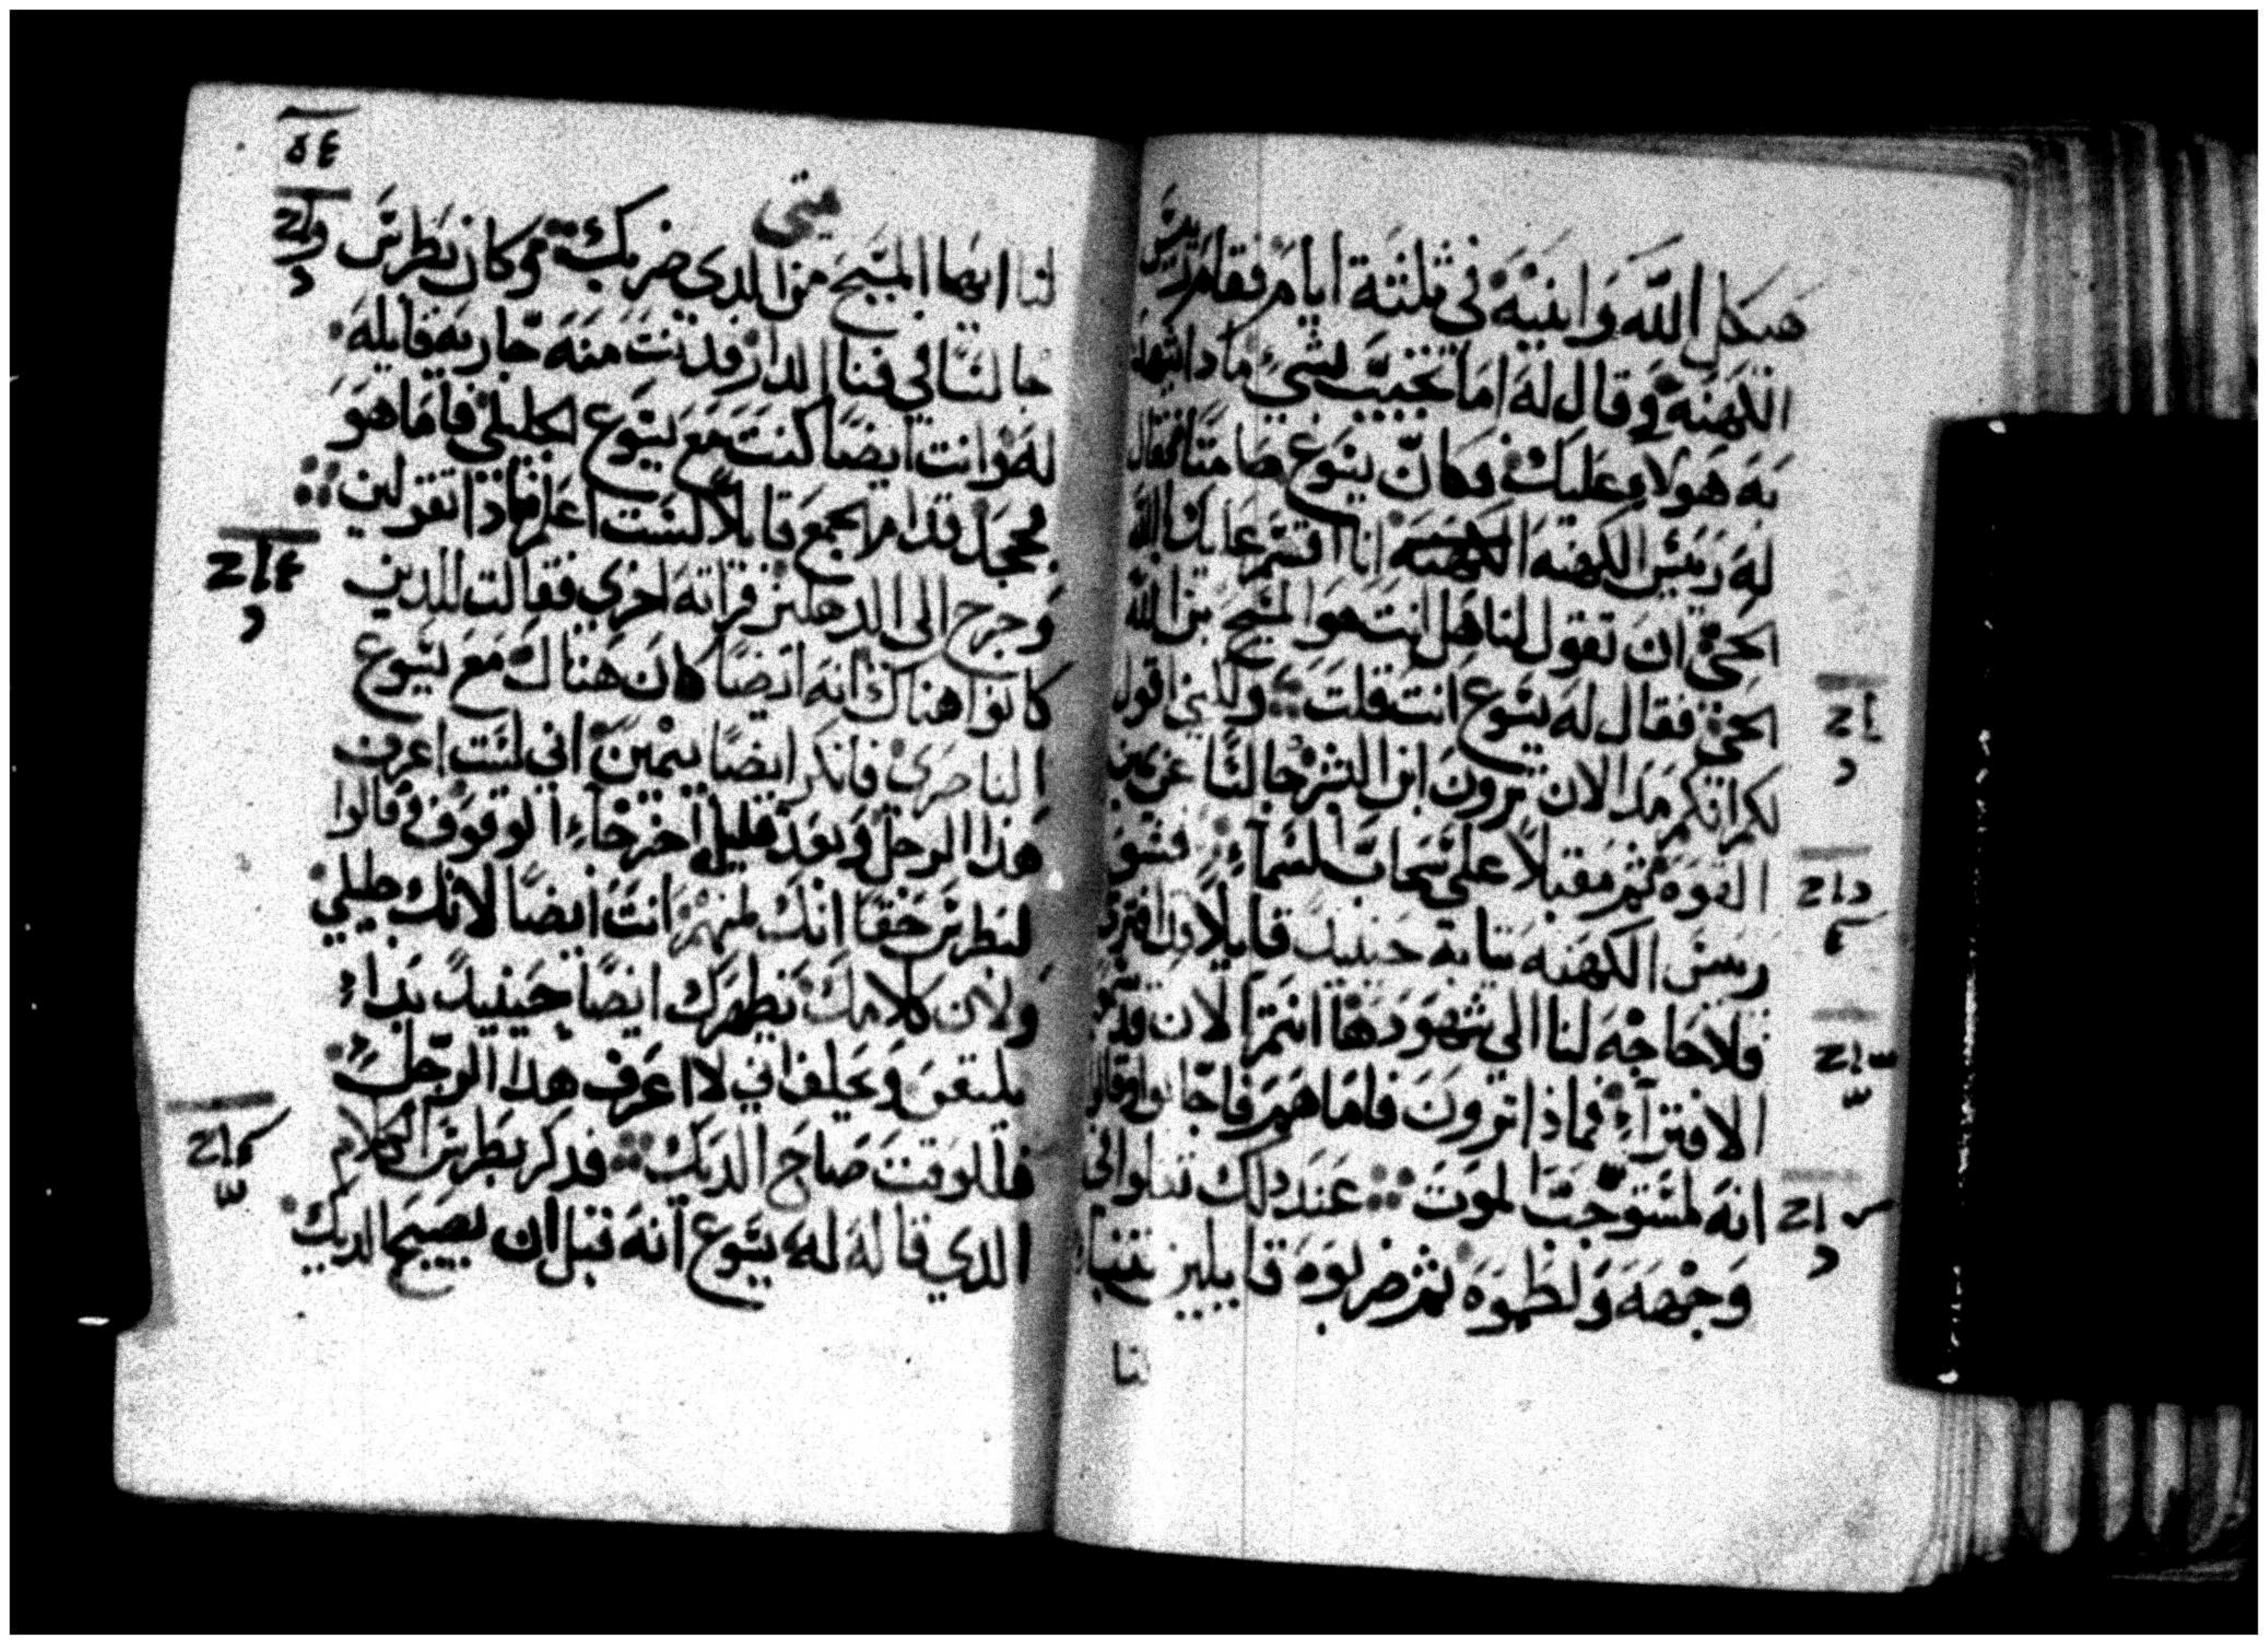 هيكل الله وابنيه في ثلثة ايام فقام رييس
الكهنه وقال له اما تجيب بشي ما دا يشهد
به هولاء عليك وكان يسوع صامتا فقال
له رييس الكهنه الكهنه انا اقسم عليك بالله
الحي ان تقول لنا هل انت هو المسيح بن الله
الحي فقال له يسوع انت قلت ولكني اقول
لكم انكم مند الان ترون ابن البشر جالسا عن يمين
القوه ثم مقبلا على سحاب السماء فشق
رييس الكهنه ثيابه حينيد قايلا قد افترى
فلا حاجه لنا الى شهود ها انتم الان قد سمعتم
الافتراء فماذا ترون فاما هم فاجابوا وقالوا
انه لمستوجب الموت عند دلك تفلوا في
وجهه ولطموه ثم ضربوه قايلين تنبا
لنا
متى
لنا ايها المسيح من الدي ضربك وكان بطرس
جالسا في فنا الدار فدنت منه جاريه قايله
له وانت ايضا كنت مع يسوع الجليلي فاما هو
فجحد قدام الجمع قايلا لست اعلم ماذا تقولين
وخرج الى الدهليز فراته اخرى فقالت للدين
كانوا هناك انه ايضا كان هناك مع يسوع
الناصري فانكر ايضا بيمين اني لست اعرف
هذا الرجل وبعد قليل اخر جاء الوقوف وقالوا
لبطرس حقا انك منهم انت ايضا لانك جليلي
ولان كلامك يظهرك ايضا حينيد بداء
يلعن ويحلف اني لا اعرف هدا الرجل
فللوقت صاح الديك فدكر بطرس الكلام
الدي قاله له يسوع انه قبل ان يصيح الديك